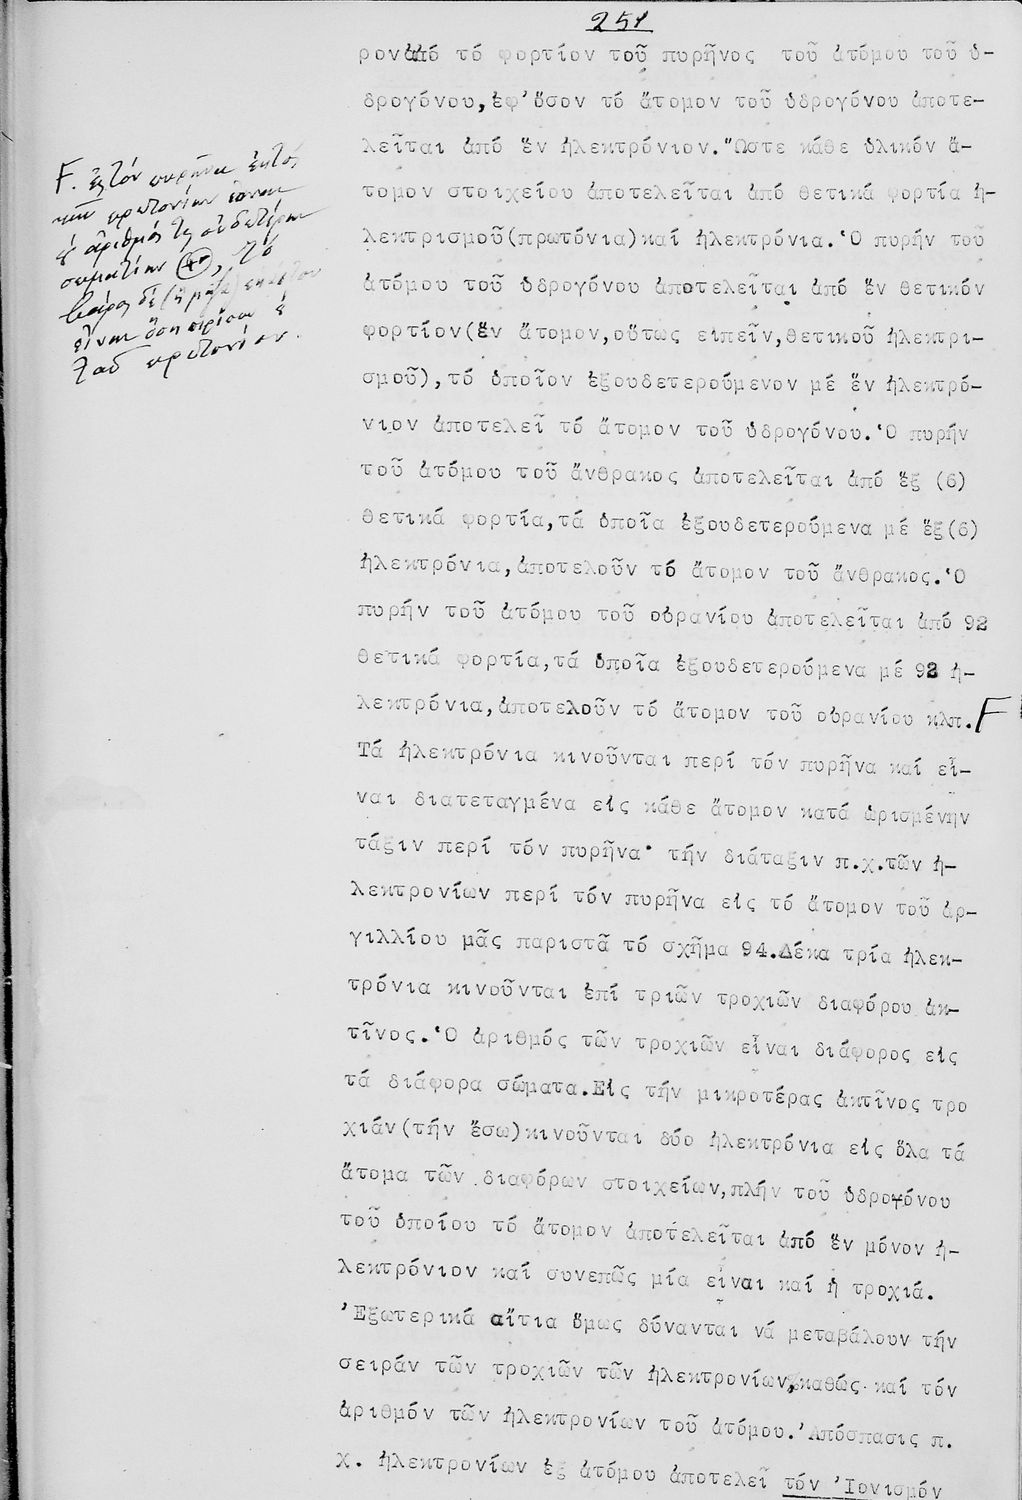 251
ρονἀπό τό φορτίον τοῦ πυρῆνος τοῦ ἀτόμου τοῦ ὑ-
δρογόνου,ἐφ'ὅσον τό ἄτομον τοῦ ὑδρογόνου ἀποτε-
λεῖται ἀπό ἕν ἠλεκτρόνιον.Ὥστε κάθε ὑλικόν ἄ-
τομον στοιχείου ἀποτελεῖται ἀπό θετικά φορτία ἠ-
λεκτρισμοῦ(πρωτόνια)καί ἠλεκτρόνια.Ὁ πυρήν τοῦ
ἀτόμου τοῦ ὑδρογόνου ἀποτελεῖται ἀπό ἕν θετικόν
φορτίον(ἕν ἄτομον,οὕτως εἰπεῖν,θετικοῦ ἠλεκτρι-
σμοῦ),τό ὁποῖον ἐξουδετερούμενον μέ ἕν ἠλεκτρό-
νιον ἀποτελεῖ τό ἄτομον τοῦ ὑδρογόνου.Ὁ πυρήν
τοῦ ἀτόμου τοῦ ἄνθρακος ἀποτελεῖται ἀπό ἕξ (6)
θετικά φορτία,τά ὁποῖα ἐξουδετερούμενα μέ ἕξ(6)
ἠλεκτρόνια,ἀποτελοῦν τό ἄτομον τοῦ ἄνθρακος.Ὁ
πυρήν τοῦ ἀτόμου τοῦ οὐρανίου ἀποτελεῖται ἀπό 92
θετικά φορτία,τά ὁποῖα ἐξουδετερούμενα μέ 92 ἠ-
λεκτρόνια,ἀποτελοῦν τό ἄτομον τοῦ οὐρανίου κλπ. F
Τά ἠλεκτρόνια κινοῦνται περί τόν πυρῆνα καί εἶ-
ναι διατεταγμένα εἰς κάθε ἄτομον κατά ὡρισμένην
τάξιν περί τόν πυρῆνα· τήν διάταξιν π.χ.τῶν ἠ-
λεκτρονίων περί τόν πυρῆνα εἰς τό ἄτομον τοῦ ἀρ-
γιλλίου μᾶς παριστᾶ τό σχῆμα 94.Δέκα τρία ἠλεκ-
τρόνια κινοῦνται ἐπί τριῶν τροχιῶν διαφόρου ἀκ-
τῖνος.Ὁ ἀριθμός τῶν τροχιῶν εἶναι διάφορος εἰς
τά διάφορα σώματα.Εἰς τήν μικροτέρας ἀκτῖνος τρο
χιάν(τήν ἔσω)κινοῦνται δύο ἠλεκτρόνια εἰς ὅλα τά
ἄτομα τῶν διαφόρων στοιχείων,πλήν τοῦ ὑδρογόνου
τοῦ ὁποίου τό ἄτομον ἀποτελεῖται ἀπό ἕν μόνον ἠ-
λεκτρόνιον καί συνεπῶς μία εἶναι καί ἡ τροχιά.
Ἐξωτερικά αἴτια ὅμως δύνανται νά μεταβάλουν τήν
σειράν τῶν τροχιῶν τῶν ἠλεκτρονίων,καθώς καί τόν
ἀριθμόν τῶν ἠλεκτρονίων τοῦ ἀτόμου.Ἀπόσπασις π.
χ. ἠλεκτρονίων ἐξ ἀτόμου ἀποτελεῖ τόν Ἰονισμόν
F. πυρῆνα ἐκτός
πρωτονίων
ἀριθμός οὐδετέρων
σωματίων
βάρος δέ
εἶναι
πρωτονίου.